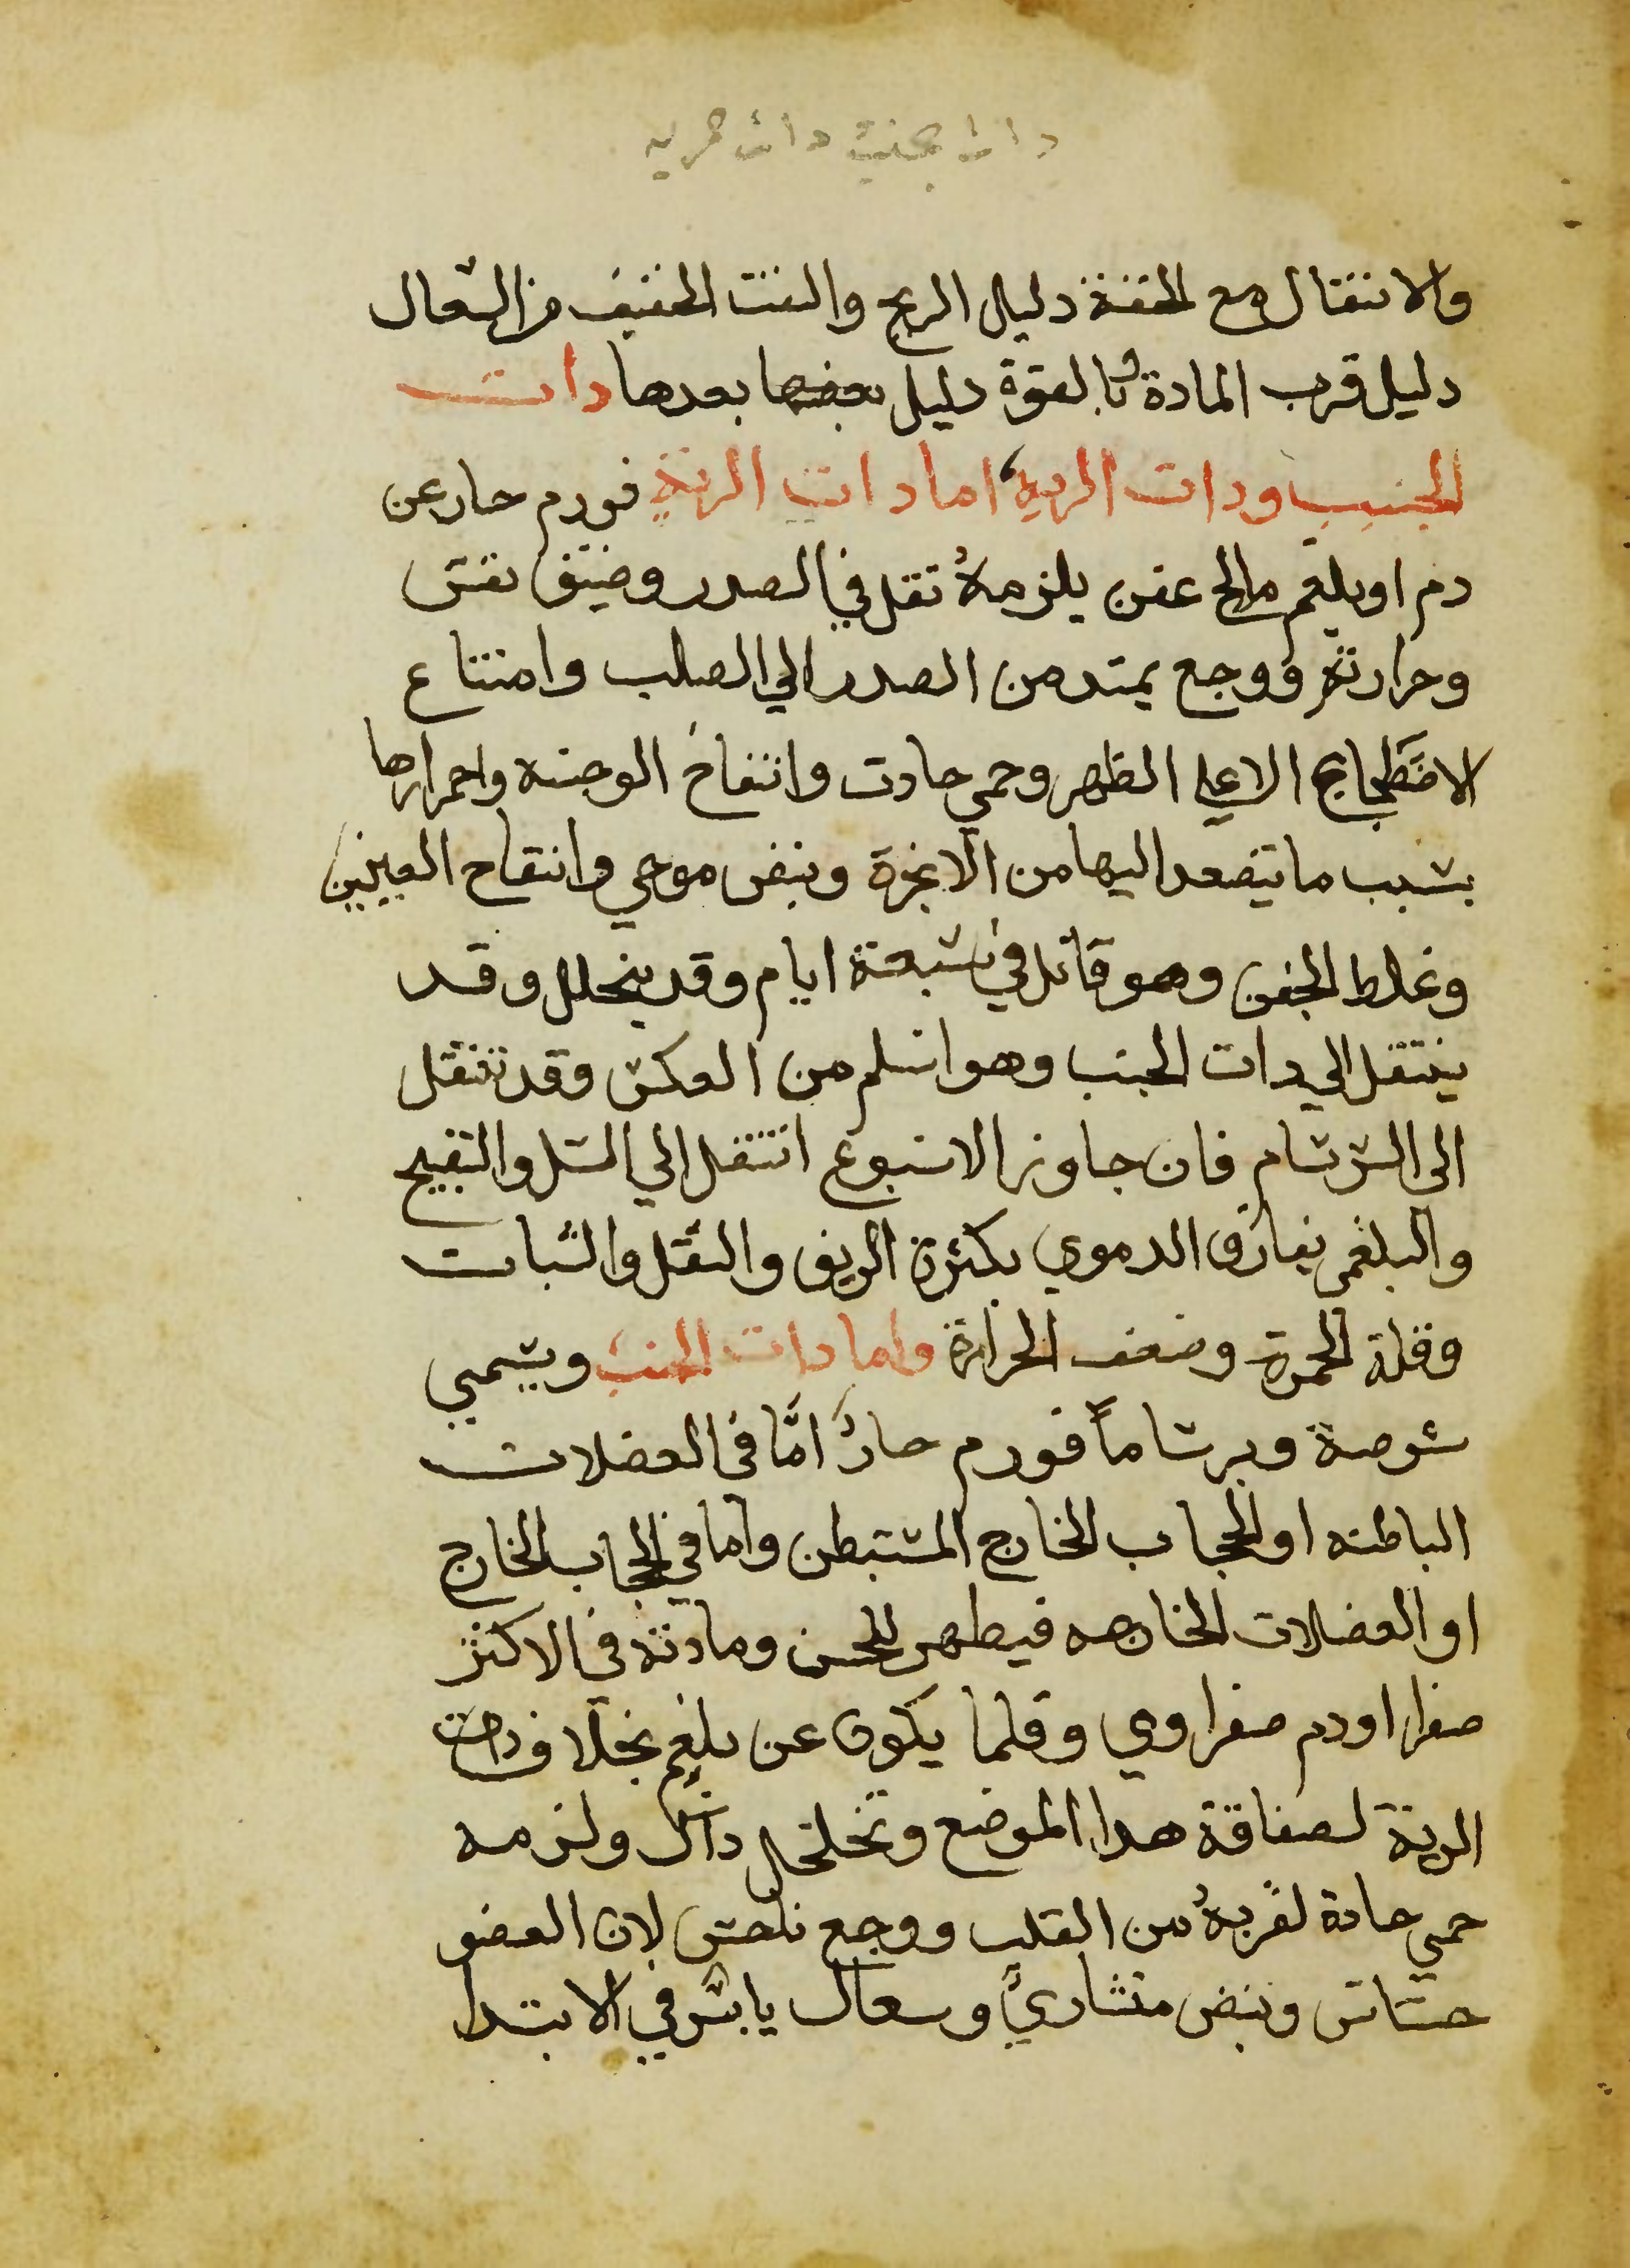 دات الجنب دات الريه
والانتقال مع الخفة دليل الريح والنفت الخفيف من السعال
دليل قرب المادة وبالقوة دليل بعدها دات
الجنب ودات الريه اما دات الرية فورم حار عن
دم او بلغم مالح عفن يلزمهُ تقل في الصدر وضيق نفس
وحرارته ووجع يمتد من الصدر الي الصلب وامتناع
الاضَطجاع الا علي الظهر وحمي حادت وانتفاخ الوجنه واحمرارها
بسبب ما يتصعد اليها من الابخرة ونبض موجي وانتفاخ العينين
وغلط الجفن وهو قاتل في سبعة ايام وقد ينحلل وقد
ينتقل الي دات الجنب وهو اسلم من العكس وقد تنتقل
الي السرسام فان جاوز الاسبوع انتقل الي السل والتقييح
والبلغمي يفارق الدموي بكثرة الريق والثقل والسبات
وقلة الحمرة وضعف الحرارة واما دات الجنب ويسمي
شوصة وبرساماً فورم حارٌ امَّا في العضلات
الباطنه او الحجاب الخارج المستبطن واما في الحجاب الخارج
او العضلات الخارجه فيظهر للحس ومادته في الاكثر
صفرا او دم صفراوي وقلما يكون عن بلغم بخلاف دات
الرية لصفاقة هدا الموضع وتخلخل داك ولزمه
حمي حادة لقربهُ من القلب ووجع ناخس لان العضو
حساس ونبض منشاريٌ وسعال يابس في الابتدا